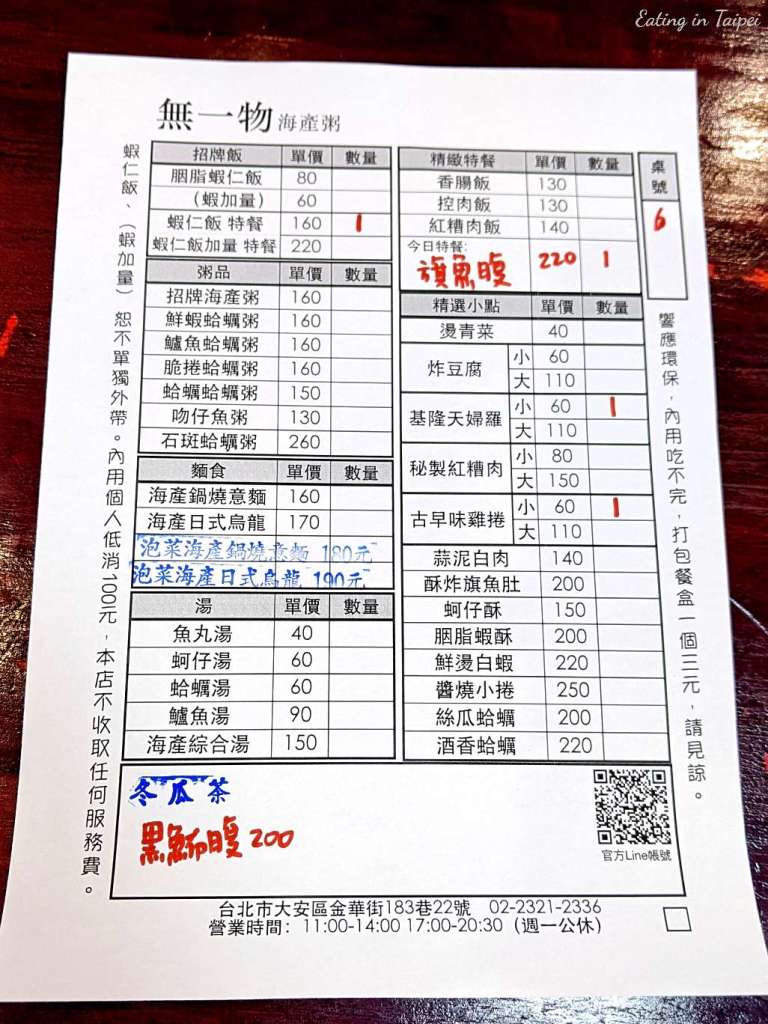 Eating in Taipei
無一物 海產粥
蝦仁飯、（蝦加量） 恕不單獨外帶。內用個人低消100元，本店不收取任何服務費。
招牌飯 單價 數量
胭脂蝦仁飯 80
（蝦加量） 60
蝦仁飯 特餐 160 1
蝦仁飯加量 特餐 220
粥品 單價 數量
招牌海產粥 160
鮮蝦蛤蠣粥 160
鱸魚蛤蠣粥 160
脆捲蛤蠣粥 160
蛤蠣蛤蠣粥 150
吻仔魚粥 130
石斑蛤蠣粥 260
麵食 單價 數量
海產鍋燒意麵 160
海產日式烏龍 170
泡菜海產鍋燒意麵 180元
泡菜海產日式烏龍 190元
湯 單價 數量
魚丸湯 40
蚵仔湯 60
蛤蠣湯 60
鱸魚湯 90
海產綜合湯 150
精緻特餐 單價 數量
香腸飯 130
控肉飯 130
紅糟肉飯 140
今日特餐:
旗魚腹 220 1
精選小點 單價 數量
燙青菜 40
炸豆腐 小 60
大 110
基隆天婦羅 小 60 1
大 110
秘製紅糟肉 小 80
大 150
古早味雞捲 小 60 1
大 110
蒜泥白肉 140
酥炸旗魚肚 200
蚵仔酥 150
胭脂蝦酥 200
鮮燙白蝦 220
醬燒小捲 250
絲瓜蛤蠣 200
酒香蛤蠣 220
桌號
6
響應環保，內用吃不完，打包餐盒一個三元，請見諒。
冬瓜茶
黑鮪腹 200
官方Line帳號
台北市大安區金華街183巷22號 02-2321-2336
營業時間：11:00-14:00 17:00-20:30（週一公休）